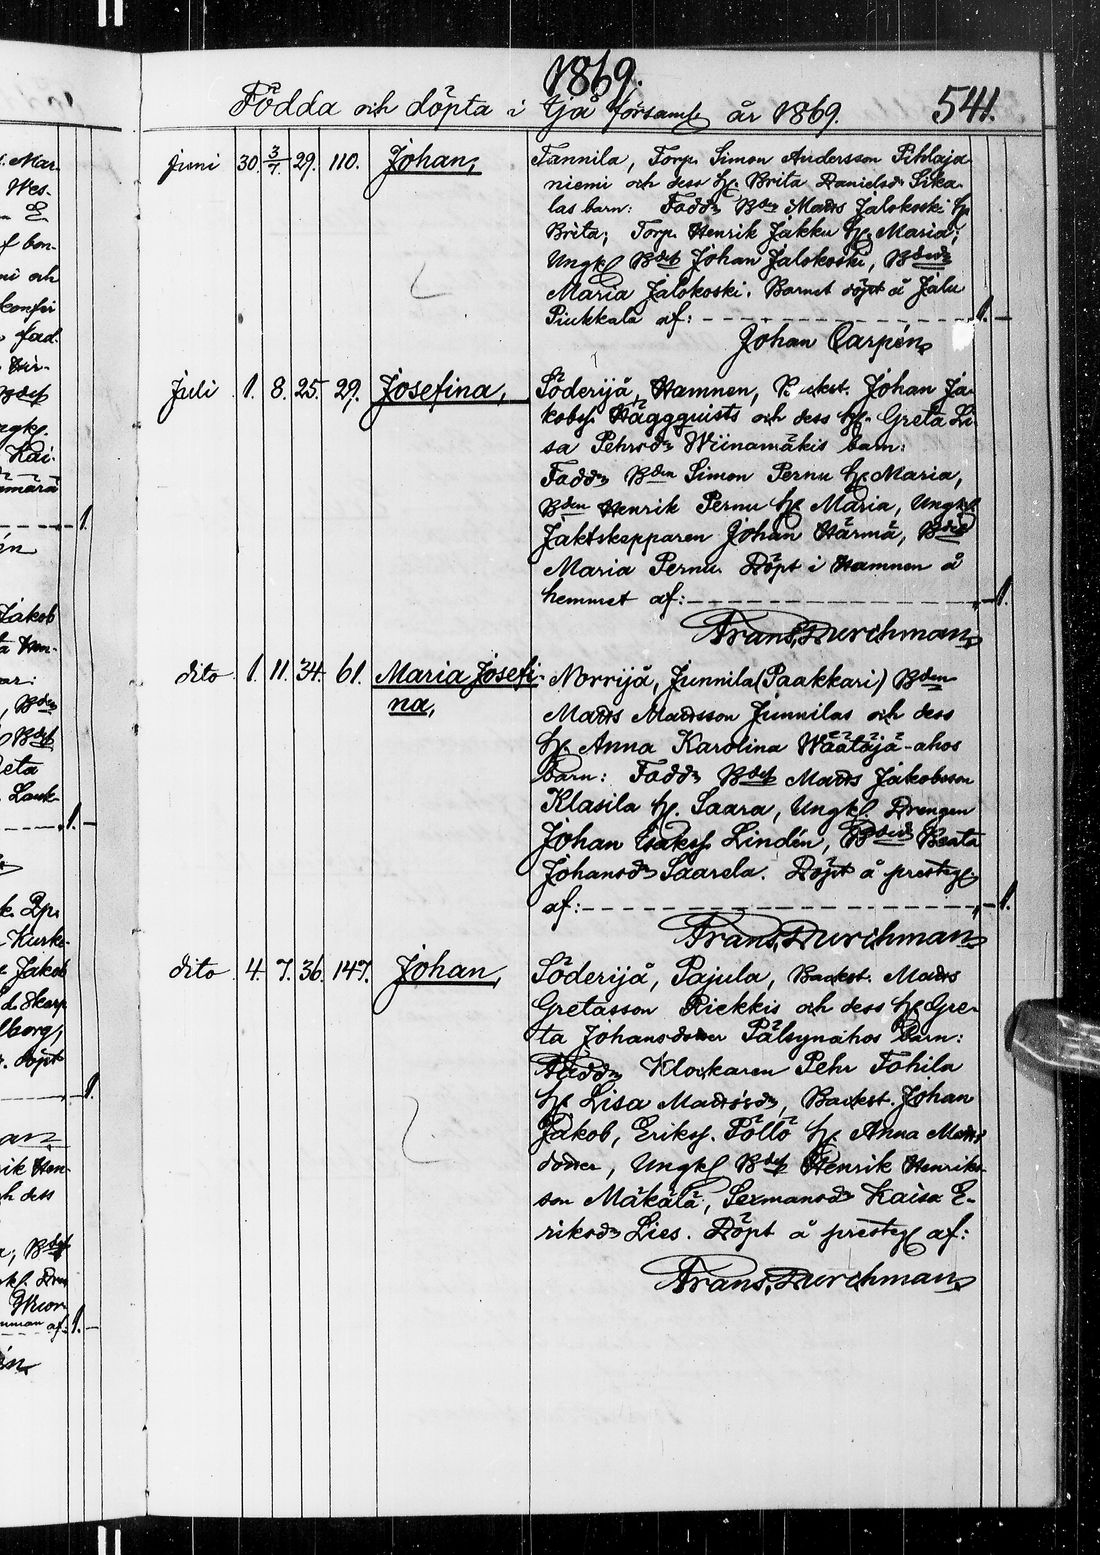 1869.
Födda och döpta i Ijå församl. år 1869. 541.
Juni 30. 3/7 29. 110. Johan, Tannila, Torp. Simon Andersson Pihlaja-
niemi och dess h. Brita Danielsdr Sika-
las barn: Fadd. Bden Matts Jalokoski h.
Brita; Torp. Henrik Jakku h. Maria;
Ungk. Bdes. Johan Jalokoski, Bdedr
Maria Jalokoski. Barnet döpt å Jalu
Piukkala af: 1.
Johan Carpén
Juli 1. 8. 25. 29. Josefina, Söderijå, Hamnen, Johan Ja-
kobss. Häggquists och dess h. Greta Li-
sa Pehrsdr Wiinamäkis barn:
Fadd. Bden Simon Pernu h. Maria,
Bden Henrik Pernu h. Maria, Ungk.
Jaktskepparen Johan Härmä, Bdedr
Maria Pernu. Döpt i Hamnen å
hemmet af: 1.
Frans Durchman
dito 1. 11. 34. 61. Maria Josefi- Norrijå, Junnila (Paakkari) Bden
na, Matts Mattsson Junnilas och dess
h. Anna Karolina Wäätäjä-ahos
barn: Fadd. Bdes. Matts Jakobsson
Klasila h. Saara, Ungk. Drengen
Johan Isakss. Lindén, Bdedr Beata
Johansdr Saarela. Döpt å prestg.
af: 1.
Frans Durchman
dito 4. 7. 36. 147. Johan, Söderijå, Pajula, Backst. Matts
Gretasson Riekkis och dess h. Gre-
ta Johansdotter Pälsynahos barn:
Fadd. Klockaren Pehr Tohila
h. Lisa Mattsdr, Backst. Johan
Jakob, Erikss. Pöllö h. Anna Matts-
dotter, Ungk. Bdes. Henrik Henriks-
son Mäkälä, Sexmansdr Kaisa E-
riksdr Lies. Döpt å prestg. af:
Frans Durchman